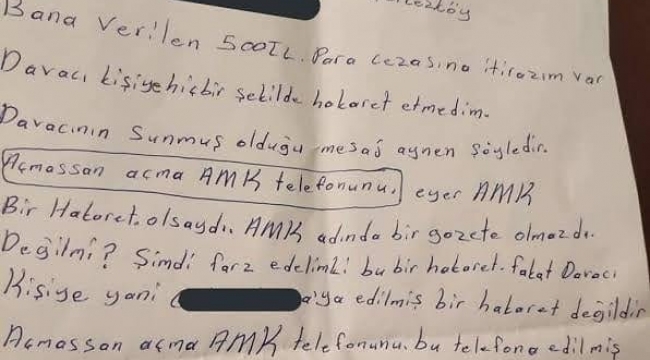 Bana Verilen 500TL. Para cezasına itirazım var
Davacı kişiye hiçbir şekilde hakaret etmedim.
Davacının Sunmuş olduğu mesaj aynen şöyledir.
Açmassan açma AMK telefonunu. eyer AMK
Bir Hakaret olsaydı. AMK adında bir gazete olmazdı.
Değilmi? Şimdi farz edelimki bu bir hakaret. fakat Davacı
Kişiye yani a'ya edilmiş bir hakaret değildir
Açmassan açma AMK telefonunu. bu telefona edilmiş